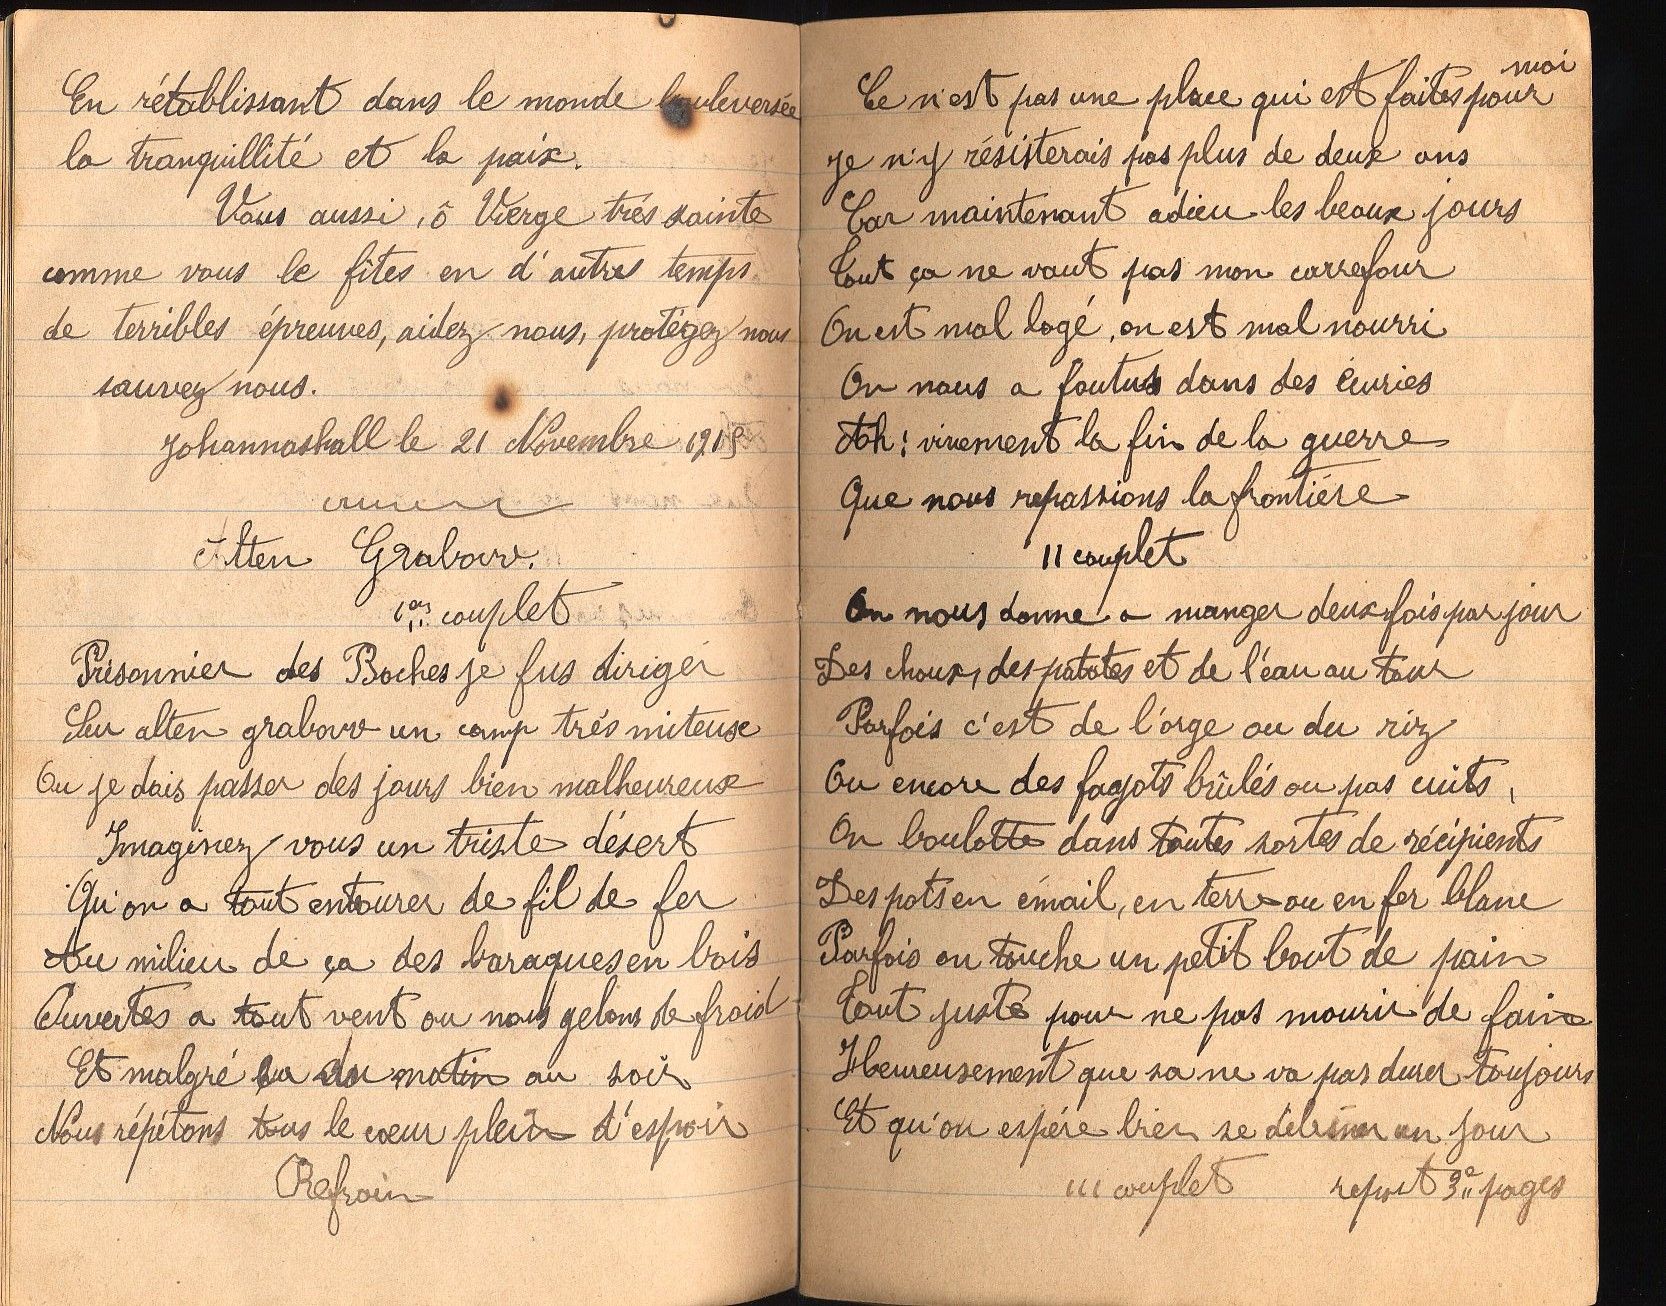 En rétablissant dans le monde bouleversée
la tranquillité et la paix.
Vous aussi, ô Vierge trés sainte
comme vous le fîtes en d'autres temps
de terribles épreuves, aidez nous, protégez nous
sauvez nous.
Johannashall le 21 Novembre 1915
Alten Grabow.
1er couplet
Prisonnier des Boches je fus diriger
Sur alten grabow un camp trés miteux
Ou je dois passer des jours bien malheureux
Imaginez vous un triste désert
Qu'on a tout entourer de fil de fer
Au milieu de ça des baraques en bois
Ouvertes a tout vent ou nous gelons de froid
Et malgré ça du matin au soir
Nous répétons tous le cœur plein d'espoir
Refrain
Ce n'est pas une place qui est faites pour moi
Je n'y résisterais pas plus de deux ans
Car maintenant adieu les beaux jours
Tout ça ne vaut pas mon carrefour
On est mal logé, on est mal nourri
On nous a foutus dans des écuries
Ah! vivement la fin de la guerre
Que nous repassions la frontiére
II couplet
On nous donne a manger deux fois par jour
Des choux, des patates et de l'eau au tour
Parfois c'est de l'orge ou du riz
Ou encore des fagots brûlés ou pas cuits,
On boulotte dans toutes sortes de récipients
Des pots en émail, en terre ou en fer blanc
Parfois on touche un petit bout de pain
Tout juste pour ne pas mourir de faim
Heureusement que sa ne va pas durer toujours
Et qu'on espére bien se débiner un jour
III couplet report 3e pages